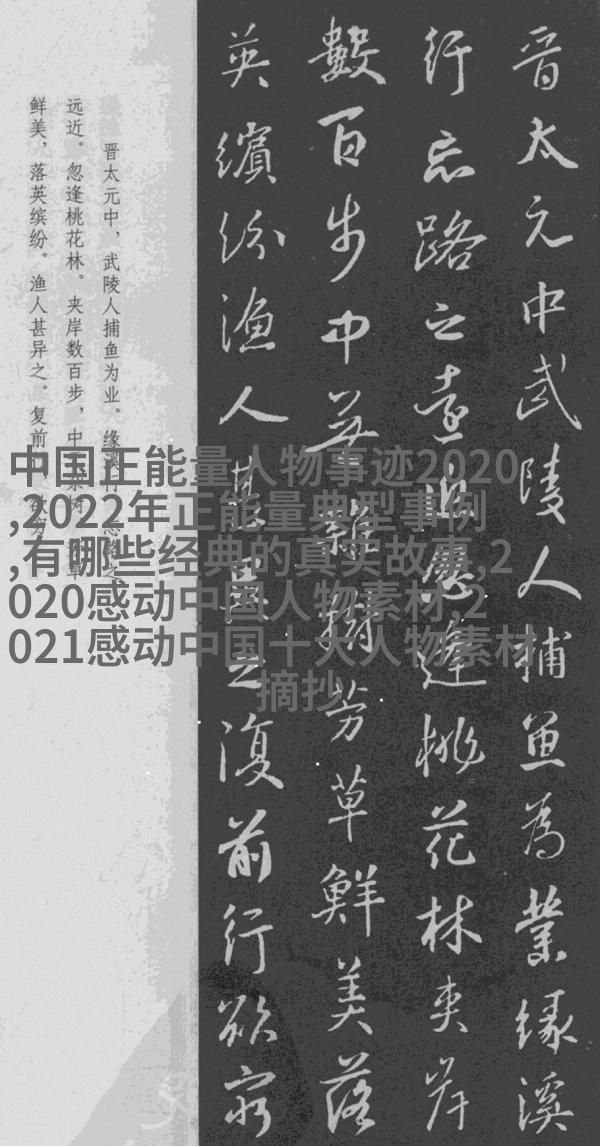 晋太元中武陵人捕魚為業緣溪
行忘路之遠近忽逢桃花林夾岸
數百步中無雜樹芳草鮮美落
英繽紛漁人甚異之復前行欲窮
晋太元中，武陵人捕鱼为业。缘溪行，忘路之
远近。忽逢桃花林。夹岸数百步，中无杂树，芳草
鲜美，落英缤纷。渔人甚异之。复前行，欲穷
中国正能量人物事迹2020
,2022年正能量典型事例
,有哪些经典的真实故事,2
020感动中国人物素材,2
021感动中国十大人物素材
摘抄